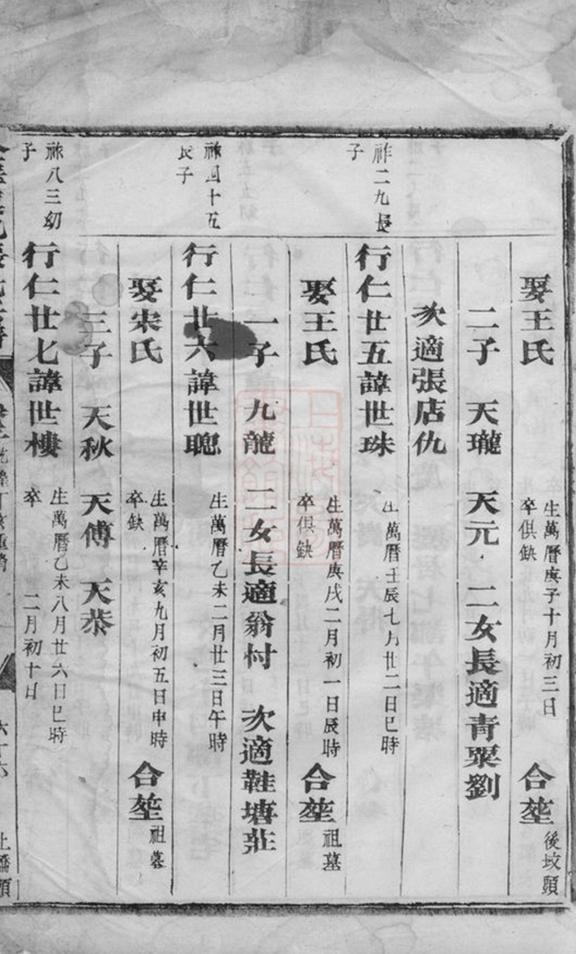 娶王氏 生萬曆庚子十月初三日 卒俱缺 合塋 後坟頭
二子 天瓏 天元 二女長適青翠劉
次適張店仇
祚二九長子
行仁廿五諱世珠 生萬曆壬辰七月廿二日巳時
娶王氏 生萬曆庚戌二月初一日辰時 卒俱缺 合塋 祖墓
一子 九龍 二女長適翁村 次適鞋塘莊
祿四十五長子
行仁廿六諱世聰 生萬曆乙未二月廿三日午時
娶宋氏 生萬曆辛亥九月初五日申時 卒缺 合塋 祖墓
三子 天秋 天傅 天恭
祿八三幼子
行仁廿七諱世樓 生萬曆乙未八月廿六日巳時 卒 二月初十日